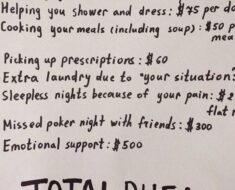 Helping you shower and dress: $75 per
Cooking your meals (including soup): $50
Picking up prescriptions: $60
Extra laundry due to "your situation
Sleepless nights because of your pain: $2
flat
Missed poker night with friends: $300
Emotional support: $500
TOTAL DUE